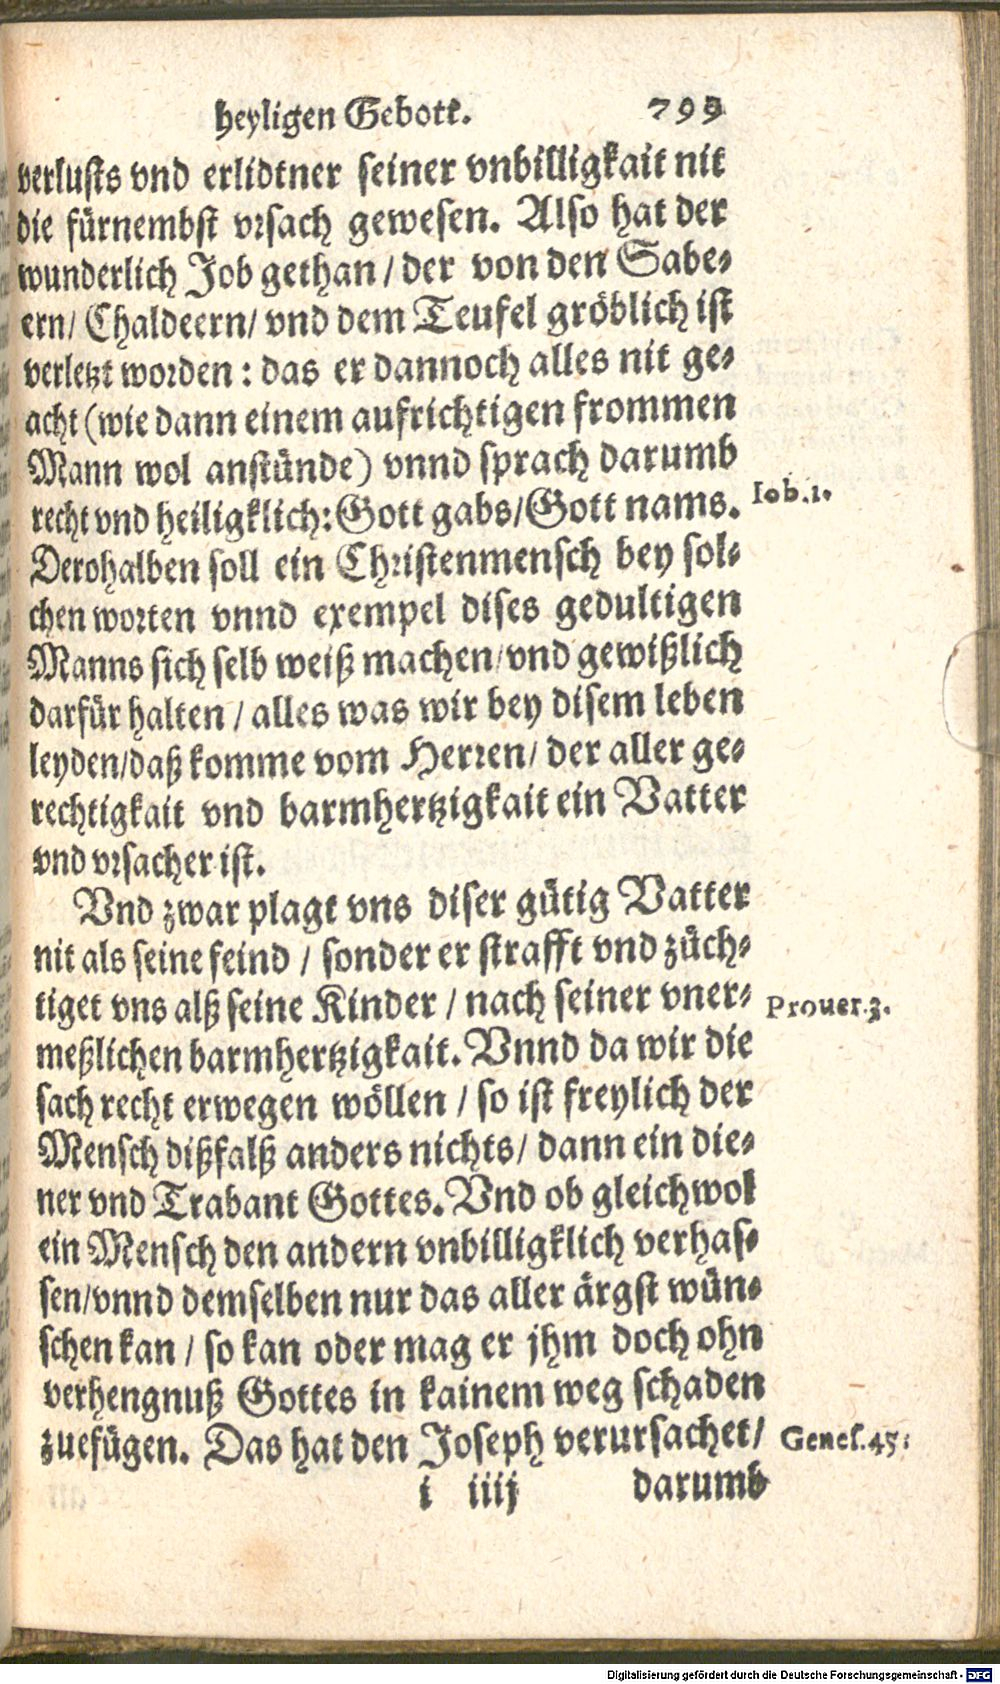 heyligen Gebott. 793
verlusts vnd erlidtner seiner vnbilligkait nit
die fürnembst vrsach gewesen. Also hat der
wunderlich Job gethan / der von den Sabe-
ern / Chaldeern / vnd dem Teufel gröblich ist
verletzt worden : das er dannoch alles nit ge-
acht (wie dann einem aufrichtigen frommen
Mann wol anstünde) vnnd sprach darumb
recht vnd heiligklich: Gott gabs / Gott nams.
Iob.1.
Derohalben soll ein Christenmensch bey sol-
chen worten vnnd exempel dises gedultigen
Manns sich selb weiß machen / vnd gewißlich
darfür halten / alles was wir bey disem leben
leyden / daß komme vom Herren / der aller ge-
rechtigkait vnd barmhertzigkait ein Vatter
vnd vrsacher ist.
Vnd zwar plagt vns diser gütig Vatter
nit als seine feind / sonder er strafft vnd züch-
tiget vns alß seine Kinder / nach seiner vner-
Prouer.3.
meßlichen barmhertzigkait. Vnnd da wir die
sach recht erwegen wöllen / so ist freylich der
Mensch dißfalß anders nichts / dann ein die-
ner vnd Trabant Gottes. Vnd ob gleichwol
ein Mensch den andern vnbilligklich verhas-
sen / vnnd demselben nur das aller ärgst wün-
schen kan / so kan oder mag er jhm doch ohn
verhengnuß Gottes in kainem weg schaden
zuefügen. Das hat den Joseph verursachet /
Genes.45.
i iiij darumb
Digitalisierung gefördert durch die Deutsche Forschungsgemeinschaft - DFG